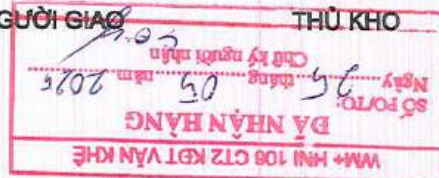 NGƯỜI GIAO THỦ KHO
WM+ HNI 106 CT2 KĐT VĂN KHÊ
ĐÃ NHẬN HÀNG
SỐ PO/TO:
Ngày 25 tháng 05 năm 2025
Chữ ký người nhận